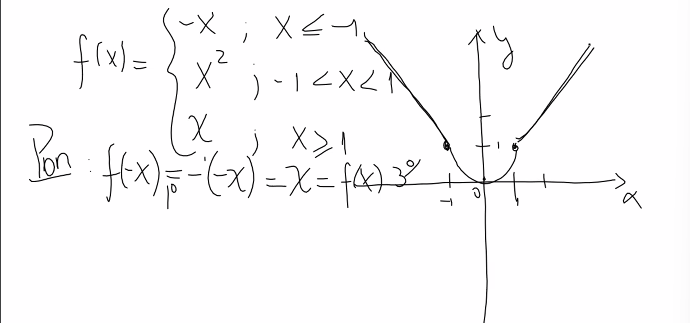 f(x) = { -x ; x ≤ -1
x² ; -1 < x < 1
x ; x ≥ 1
Pon: f(-x) = -(-x) = x = f(x) 3°
1°
y
1
-1 0 1 x